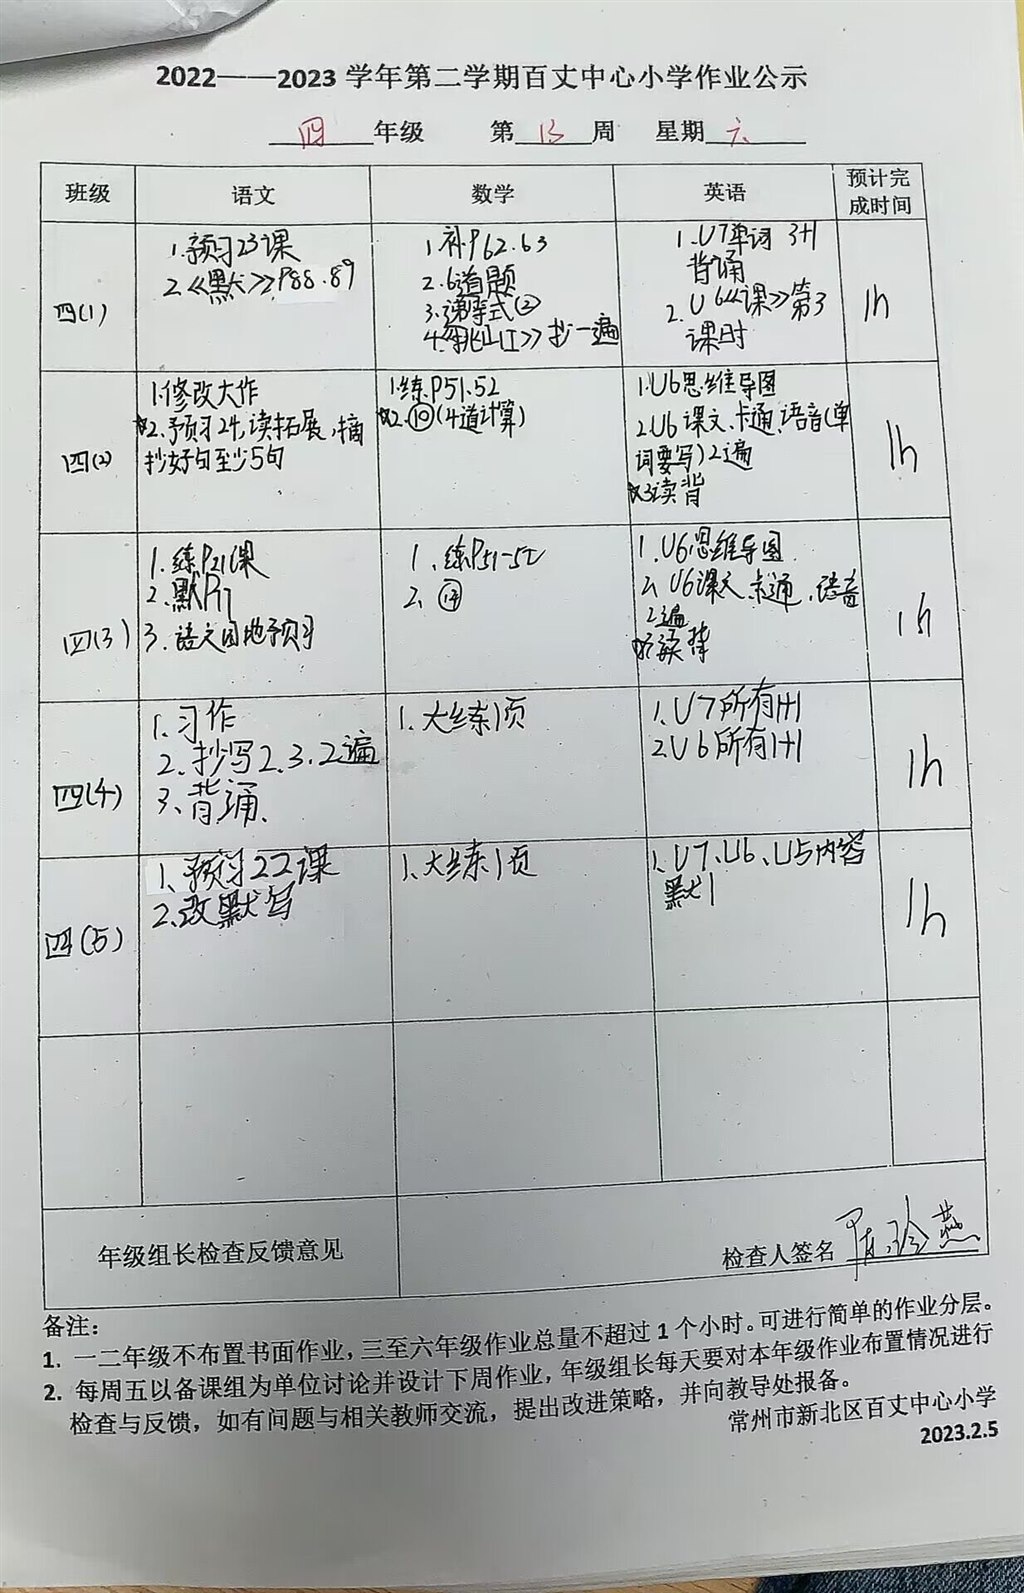 2022——2023 学年第二学期百丈中心小学作业公示
四 年级 第 13 周 星期 六
班级 语文 数学 英语 预计完成时间
四(1)
1.预习23课
2.《默》P88.89
1.补P62.63
2.6道题
3.递等式②
4.《 》抄一遍
1.U7单词 3+1
背诵
2.U6《课》第3
课时
1h
四(2)
1.修改大作
☆2.预习24,读拓展,摘
抄好句至少5句
1.练P51.52
☆2.⑩(4道计算)
1.U6思维导图
2.U6课文、卡通、语音(单
词要写)2遍
☆3.读背
1h
四(3)
1.练P21课
2.默P17
3.语文园地预习
1、练P51-52
2、
1.U6思维导图
2、U6课文、卡通、语音
2遍
读背
1h
四(4)
1.习作
2.抄写2.3.2遍
3、背诵、
1.大练1页
1.U7所有1+1
2.U6所有1+1
1h
四(5)
1、预习22课
2.改默写
1、大练1页
1.U7、U6、U5内容
默1
1h
年级组长检查反馈意见
检查人签名
备注：
1. 一二年级不布置书面作业，三至六年级作业总量不超过 1 个小时。可进行简单的作业分层。
2. 每周五以备课组为单位讨论并设计下周作业，年级组长每天要对本年级作业布置情况进行
检查与反馈，如有问题与相关教师交流，提出改进策略，并向教导处报备。
常州市新北区百丈中心小学
2023.2.5